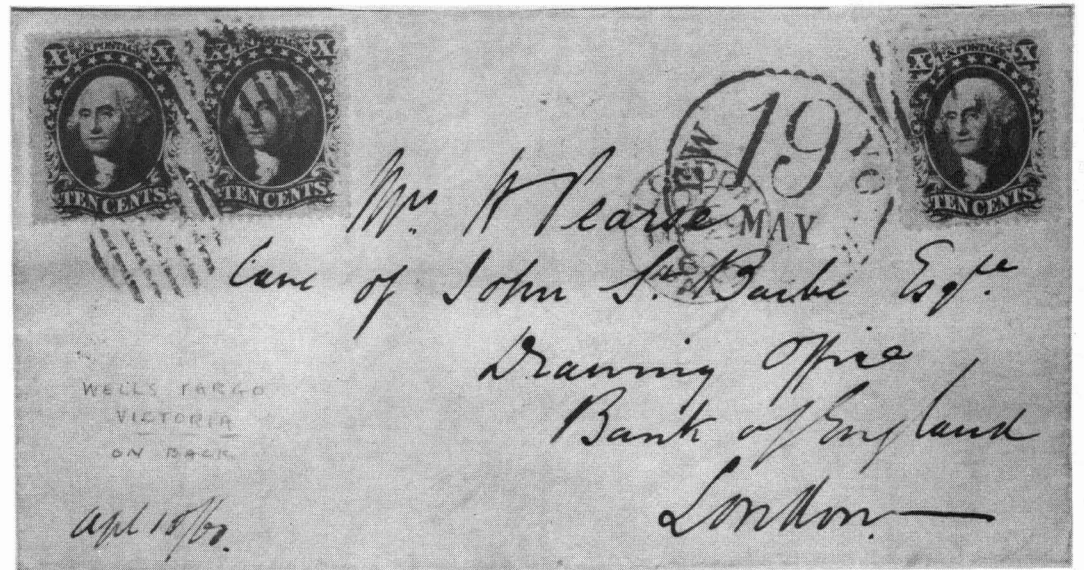 X U.S. POSTAGE X
TEN CENTS
X U.S. POSTAGE X
TEN CENTS
X U.S. POSTAGE X
TEN CENTS
NEW YO
19
MAY
Mrs H Pearse
Care of John St. Barbe Esqre
Drawing Office
Bank of England
London
WELLS FARGO
VICTORIA
ON BACK
Apl 15/60.